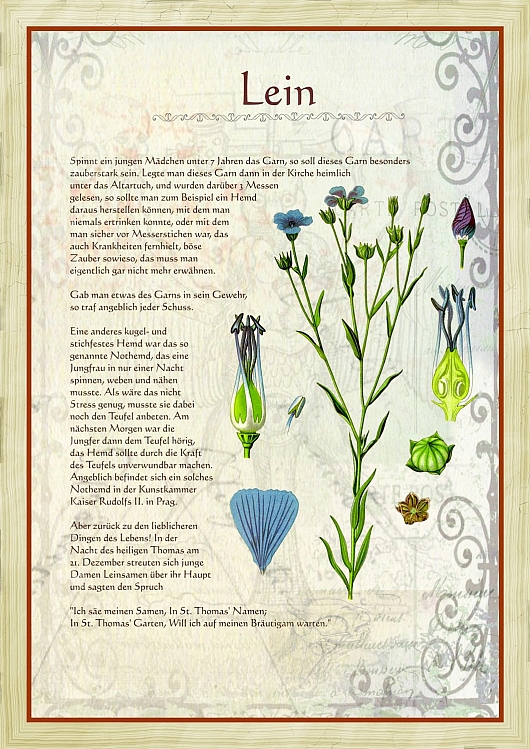 Lein
Spinnt ein jungen Mädchen unter 7 Jahren das Garn, so soll dieses Garn besonders
zauberstark sein. Legte man dieses Garn dann in der Kirche heimlich
unter das Altartuch, und wurden darüber 3 Messen
gelesen, so sollte man zum Beispiel ein Hemd
daraus herstellen können, mit dem man
niemals ertrinken konnte, oder mit dem
man sicher vor Messerstichen war, das
auch Krankheiten fernhielt, böse
Zauber sowieso, das muss man
eigentlich gar nicht mehr erwähnen.
Gab man etwas des Garns in sein Gewehr,
so traf angeblich jeder Schuss.
Eine anderes kugel- und
stichfestes Hemd war das so
genannte Nothemd, das eine
Jungfrau in nur einer Nacht
spinnen, weben und nähen
musste. Als wäre das nicht
Stress genug, musste sie dabei
noch den Teufel anbeten. Am
nächsten Morgen war die
Jungfer dann dem Teufel hörig,
das Hemd sollte durch die Kraft
des Teufels unverwundbar machen.
Angeblich befindet sich ein solches
Nothemd in der Kunstkammer
Kaiser Rudolfs II. in Prag.
Aber zurück zu den lieblicheren
Dingen des Lebens! In der
Nacht des heiligen Thomas am
21. Dezember streuten sich junge
Damen Leinsamen über ihr Haupt
und sagten den Spruch
"Ich säe meinen Samen, In St. Thomas' Namen;
In St. Thomas' Garten, Will ich auf meinen Bräutigam warten."